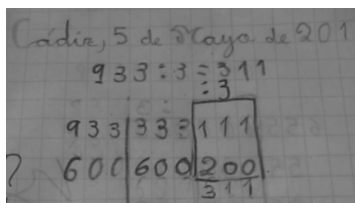 Cádiz, 5 de Mayo de 201
933:3=311
:3
933 333 111
600 600 200
311